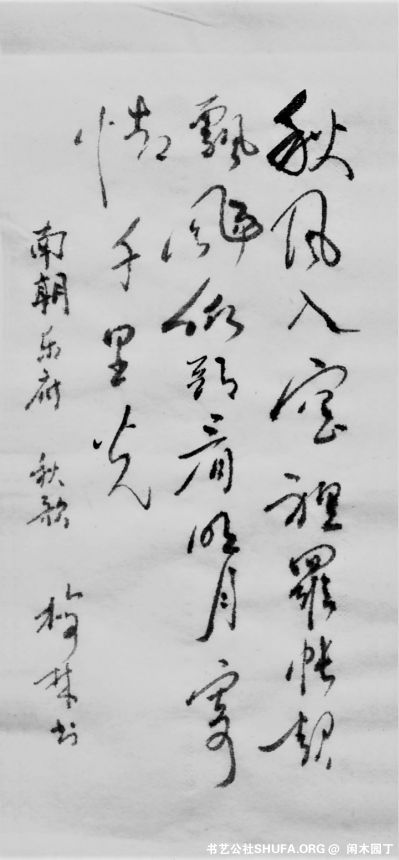 秋风入窗裡羅帐起
飄飏仰頭看明月寄
情千里光
南朝乐府 秋歌 梅林书
书艺公社SHUFA.ORG @ 闲木园丁